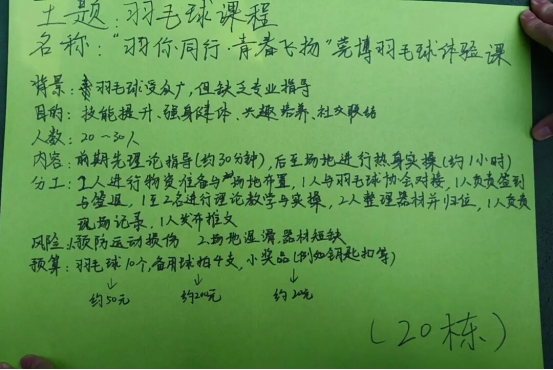 主题:羽毛球课程
名称:“羽你同行·青春飞扬”莞博羽毛球体验课
背景:羽毛球受众广,但缺乏专业指导
目的:技能提升、强身健体、兴趣培养、社交联结
人数:20—30人
内容:前期先理论指导(约30分钟),后至场地进行热身实操(约1小时)
分工:1人进行物资准备与场地布置,1人与羽毛球协会对接,1人负责签到
与签退,1至2名进行理论教学与实操,2人整理器材并归位,1人负责
现场记录,1人发布推文
风险:1.预防运动损伤 2.场地湿滑,器材短缺
预算:羽毛球10个,备用球拍4支,小奖品(例如钥匙扣等)
↓ ↓ ↓
约50元 约200元 约20元
(20栋)